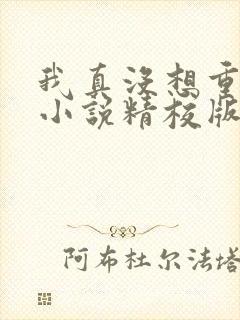 我真没想重
小说精校版
阿布杜尔法塔